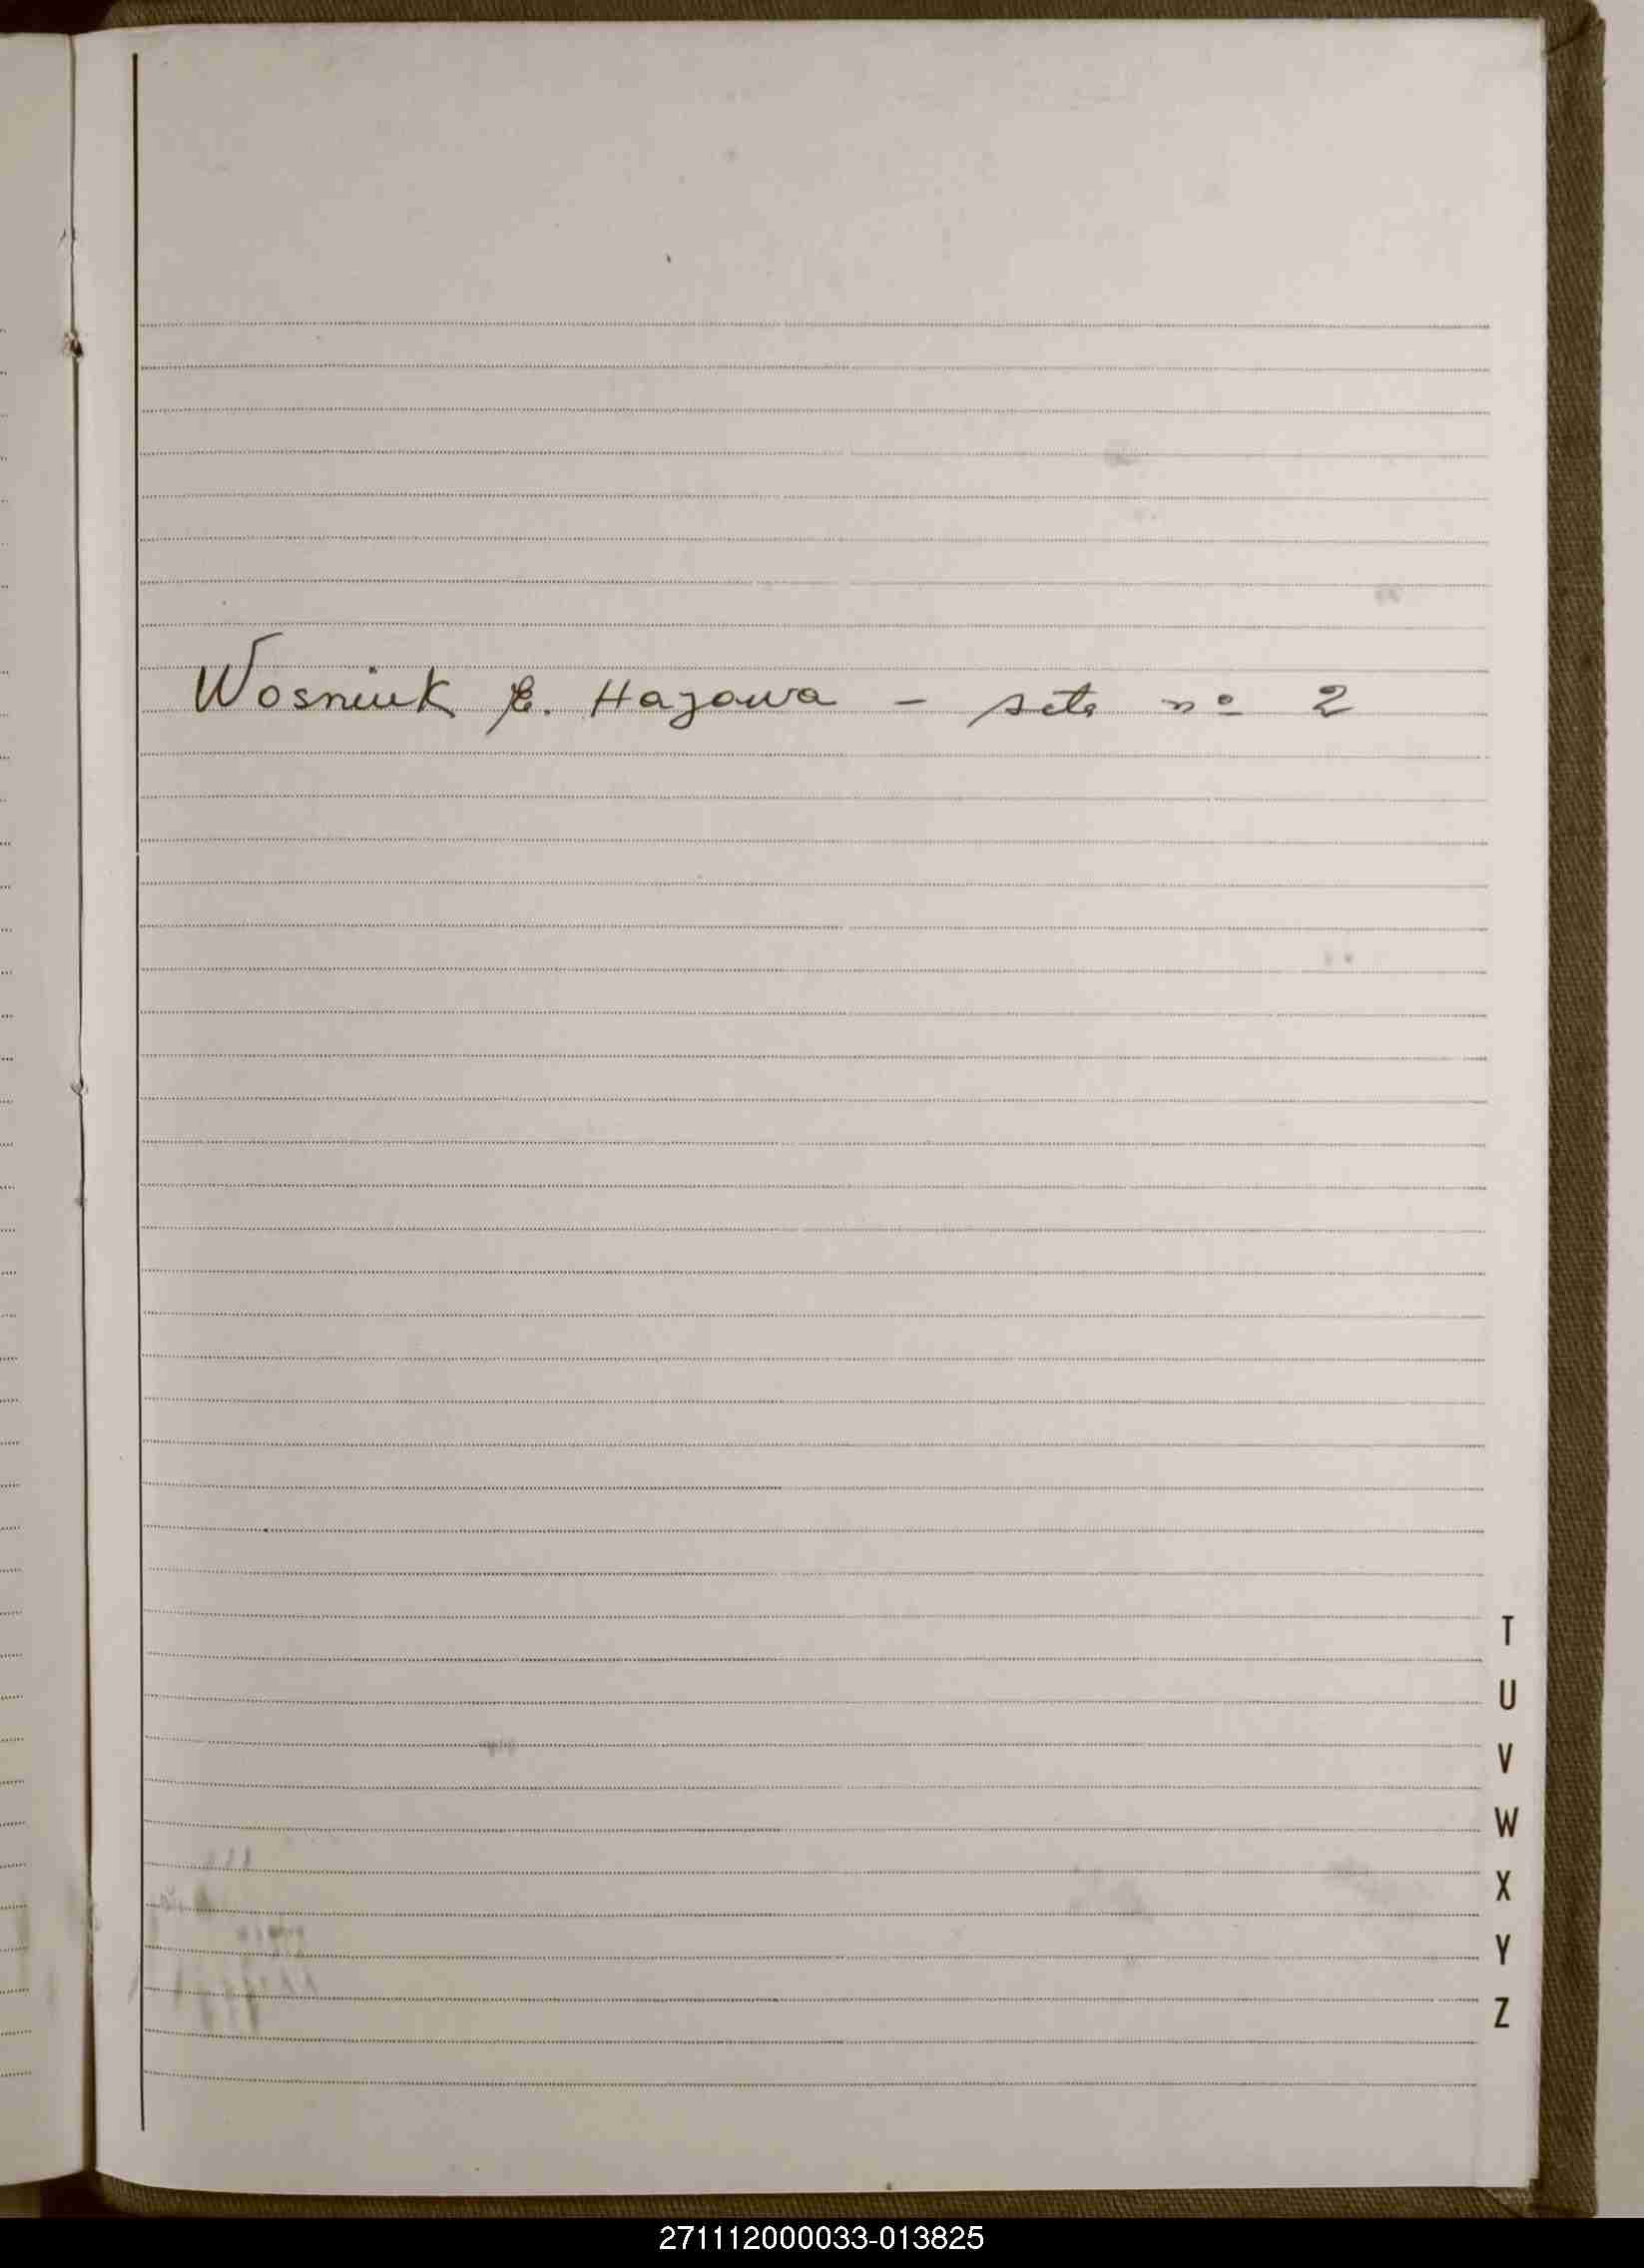 Wosniuk E. Hajowa - seta nº 2
T
U
V
W
X
Y
Z
271112000033-013825